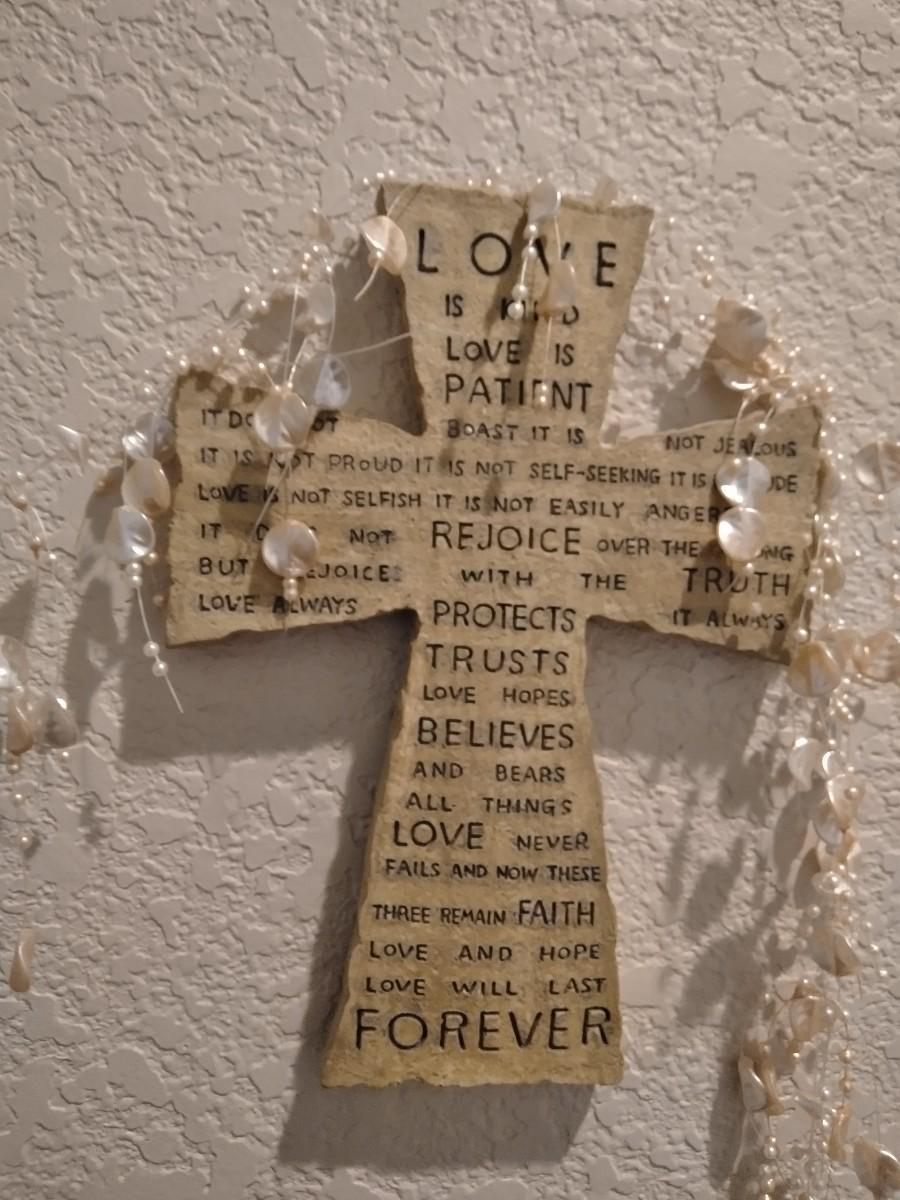 LOVE
IS KIND
LOVE IS
PATIENT
IT DOES NOT BOAST IT IS NOT JEALOUS
IT IS NOT PROUD IT IS NOT SELF-SEEKING IT IS RUDE
LOVE IS NOT SELFISH IT IS NOT EASILY ANGERED
IT DOES NOT REJOICE OVER THE WRONG
BUT REJOICES WITH THE TRUTH
LOVE ALWAYS PROTECTS IT ALWAYS
TRUSTS
LOVE HOPES
BELIEVES
AND BEARS
ALL THINGS
LOVE NEVER
FAILS AND NOW THESE
THREE REMAIN FAITH
LOVE AND HOPE
LOVE WILL LAST
FOREVER